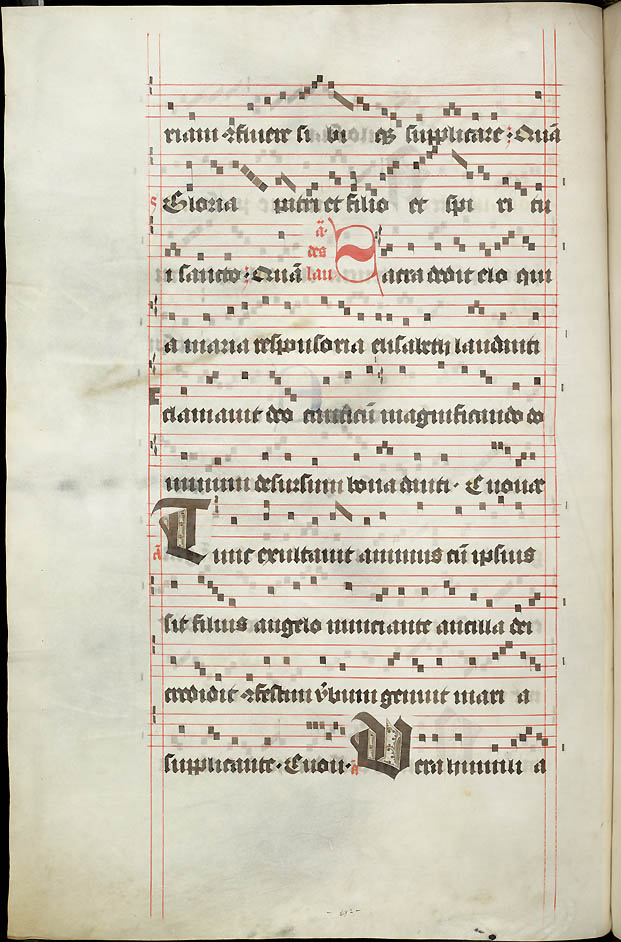 riam ⁊ funere si bi eꝰ supplicare : Quā
Gloria patri et filio et spi ri tu
i sancto : Quā
ā
des
lau
Sacra dedit elo qui
a maria responsoria elisabeth lauduiti
clamauit deo canticū magnificando do
minum desursum bona diuiti · Euouae
ā Tunc exultauit animus cū ipsius
sit filius angelo nunciante ancilla dei
credidit ⁊ festum v̄bum genuit mari a
supplicante · Euou · ā Vera humili a